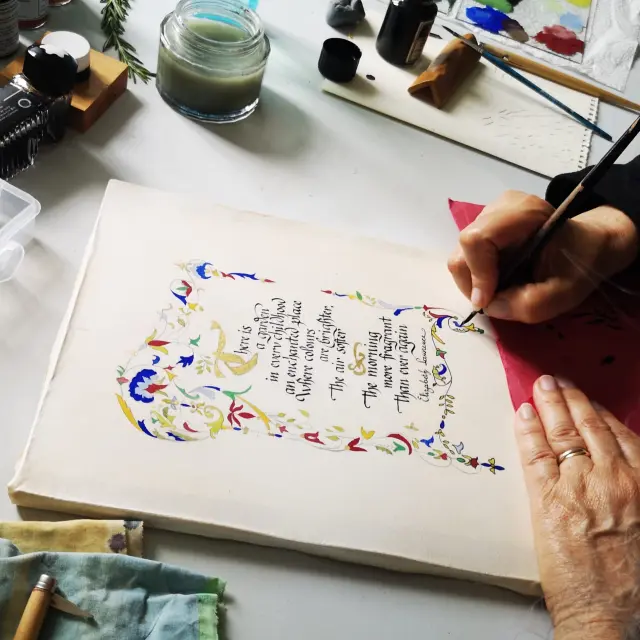 There is
a garden
in every childhood
an enchanted place
Where colours
are brighter,
The air softer
&
The morning
more fragrant
than ever again
Elizabeth Lawrence